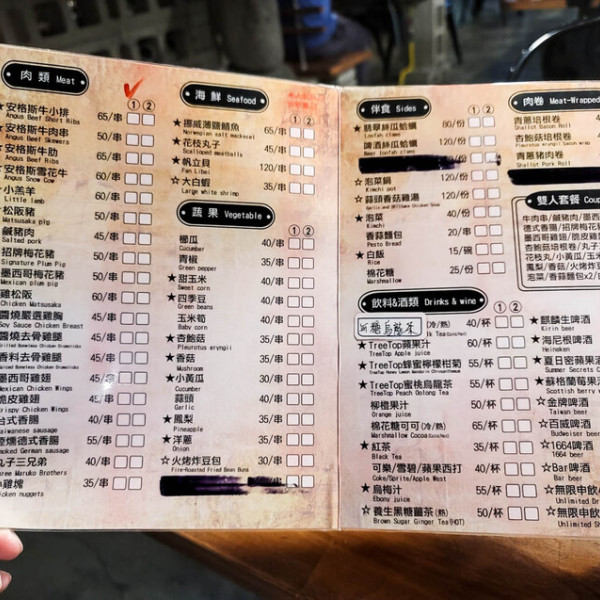 肉類 Meat
① ②
★安格斯牛小排 65/串
Angus Beef Short Ribs
★安格斯牛肉串 50/串
Angus Beef Skewers
★安格斯牛肋 65/串
Angus Beef Ribs
★安格斯雪花牛 60/串
Angus Snow Cow
小羔羊 60/串
Little lamb
松阪豬 50/串
Matsusaka pig
鹹豬肉 45/串
Salted pork
招牌梅花豬 50/串
Signature Plum Pig
墨西哥梅花豬 50/串
Mexican plum pig
雞松阪 50/串
Chicken Matsusaka
醬燒嚴選雞胸
Soy Sauce Chicken Breast
醬燒去骨雞腿
香料去骨雞腿 45/串
墨西哥雞翅 45/串
Mexican Chicken Wings
脆皮雞翅 45/串
Crispy Chicken Wings
台式香腸 40/串
Taiwanese sausage
煙燻德式香腸 55/串
Smoked German sausage
丸子三兄弟 40/串
Three Maruko Brothers
雞塊 35/串
Chicken nuggets
海鮮 Seafood
① ②
★挪威薄鹽鯖魚 65/串
Norwegian salt mackerel
★花枝丸子 45/串
Scalloped meatballs
★帆立貝 30/串
Fan Libei
☆大白蝦 35/串
Large white shrimp
蔬果 Vegetable
① ②
櫛瓜 40/串
Cucumber
青椒 35/串
Green pepper
★甜玉米 50/串
Sweet corn
★四季豆 30/串
Green beans
玉米筍 40/串
Baby corn
★杏鮑菇 35/串
Pleurotus eryngii
★香菇 35/串
Mushroom
★小黃瓜 30/串
Cucumber
蒜頭 40/串
Garlic
★鳳梨 35/串
Pineapple
★洋蔥 35/串
Onion
☆火烤炸豆包 30/串
Fire-Roasted Fried Bean Buns
伴食 Sides
① ②
★翡翠絲瓜蛤蠣 60/份
Loofah clams
啤酒絲瓜蛤蠣 120/份
Beer loofah clams
☆泡菜鍋 160/份
Kimchi pot
☆蒜頭香菇雞湯 120/份
Garlic and Shiitake Chicken Soup
★泡菜 40/份
Kimchi
香蒜麵包 20/串
Pesto Bread
★白飯 15/碗
Rice
棉花糖 25/份
Marshmallow
飲料&酒類 Drinks & wine
① ②
(冷/熱) 40/杯
★TreeTop蘋果汁 60/杯
TreeTop Apple juice
★TreeTop蜂蜜檸檬柑菊 55/杯
★TreeTop蜜桃烏龍茶 55/杯
TreeTop Peach Oolong Tea
柳橙蘋果汁 50/杯
Orange apple juice
棉花糖可可(冷/熱) 65/杯
Marshmallow Cocoa
★紅茶 35/杯
Black Tea
可樂/雪碧/蘋果西打 40/杯
Coke/Sprite/Apple West
★烏梅汁 55/杯
Ebony juice
☆養生黑糖薑茶(熱) 50/杯
Brown Sugar Ginger Tea(HOT)
肉卷 Meat-Wrapped
青蔥培根卷
Shallot Bacon Roll
杏鮑菇培根卷
Pleurotus eryngii Bacon wrap
青蔥豬肉卷
Shallot Pork Roll
雙人套餐 Coup
牛肉串/鹹豬肉/墨西
德式香腸/招牌梅花豬
墨西哥雞翅/脆皮雞翅
杏鮑菇培根卷/丸子
花枝丸/小黃瓜/玉米
鳳梨/香菇/火烤炸豆
泡菜/香蒜麵包x2/
★麒麟生啤酒
Kirin beer
★海尼根啤酒
Heineken
★夏日密蘋果酒
Summer Secrets C
★蘇格蘭莓果酒
Scottish berry w
☆金牌啤酒
Taiwan beer
☆百威啤酒
Budweiser beer
☆1664啤酒
1664 beer
☆Bar啤酒
Bar beer
★無限申飲
Unlimited Dr
☆無限申飲
Unlimited Sh